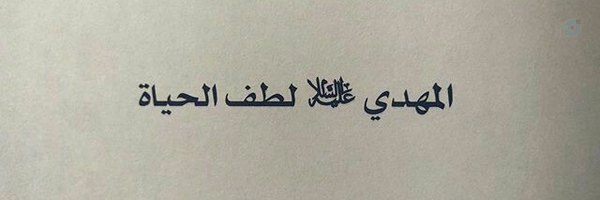 المهدي عليه السلام لطف الحياة